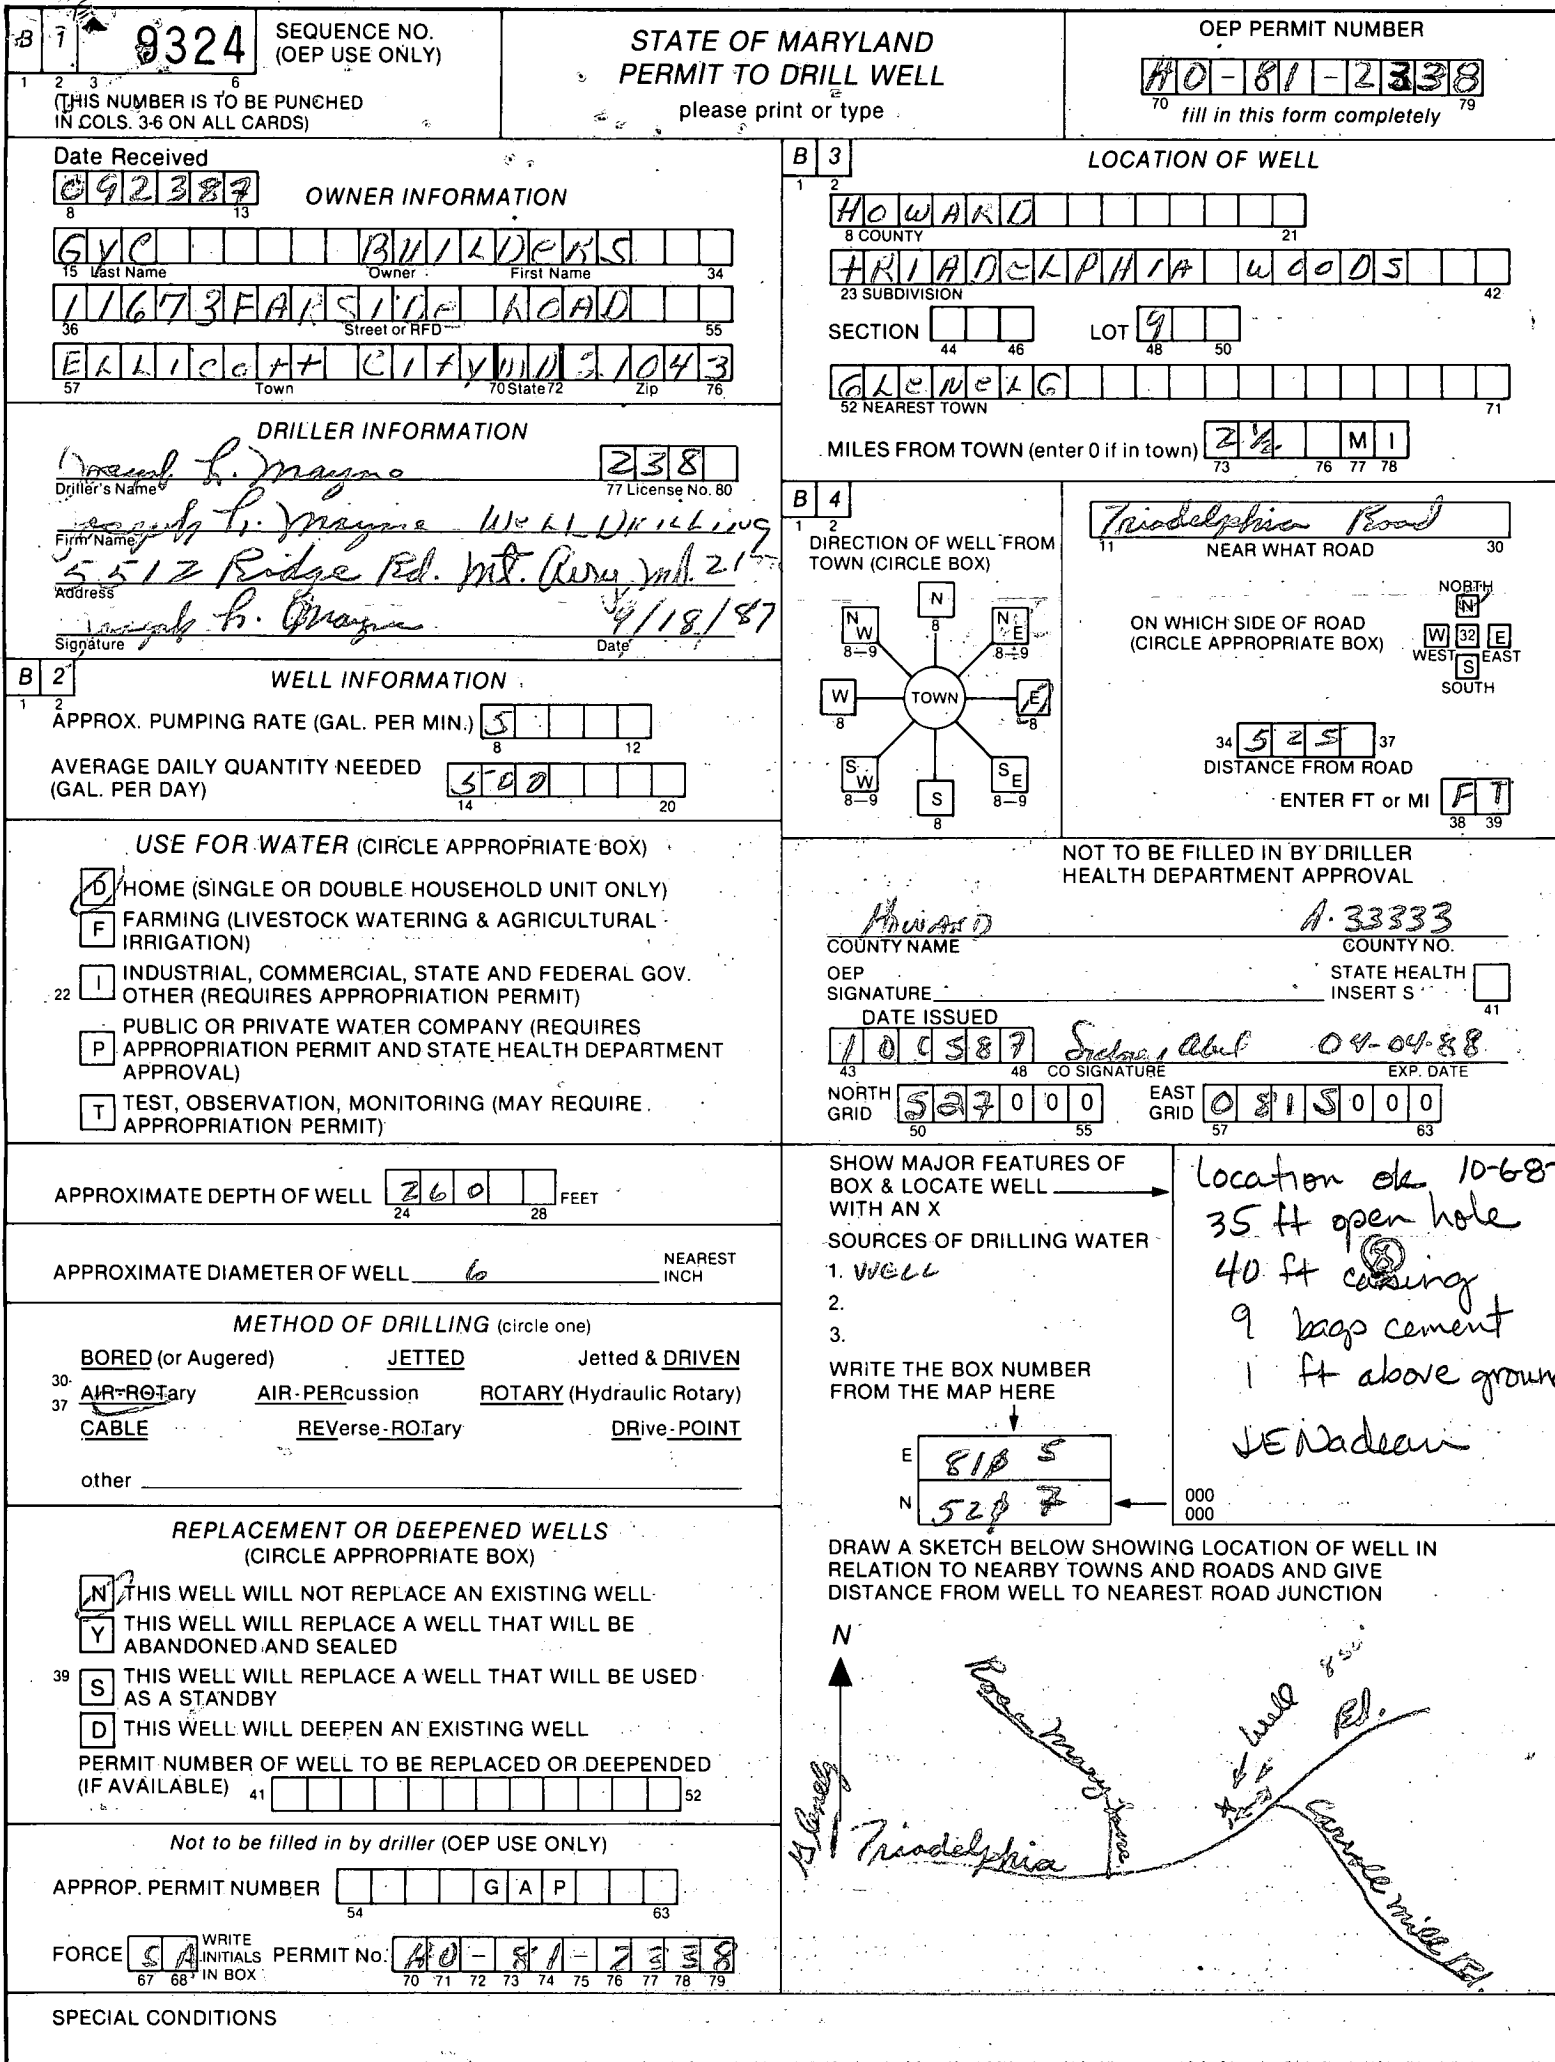 B 1 9324 SEQUENCE NO.
(OEP USE ONLY)
1 2 3 6
(THIS NUMBER IS TO BE PUNCHED
IN COLS. 3-6 ON ALL CARDS)
STATE OF MARYLAND
PERMIT TO DRILL WELL
please print or type
OEP PERMIT NUMBER
HO-81-2338
70 79
fill in this form completely
Date Received
092387
8 13
OWNER INFORMATION
GYC BUILDERS
15 Last Name Owner First Name 34
11673 FARSIDE ROAD
36 Street or RFD 55
Ellicott City MD 21043
57 Town 70 State 72 Zip 76
DRILLER INFORMATION
Joseph L. Mayne 238
Driller's Name 77 License No. 80
Joseph L. Mayne Well Drilling
Firm Name
5512 Ridge Rd. Mt. Airy Md. 21
Address
Joseph L. Mayne 9/18/87
Signature Date
B 2 WELL INFORMATION
1 2
APPROX. PUMPING RATE (GAL. PER MIN.) 5
8 12
AVERAGE DAILY QUANTITY NEEDED
(GAL. PER DAY) 500
14 20
USE FOR WATER (CIRCLE APPROPRIATE BOX)
D HOME (SINGLE OR DOUBLE HOUSEHOLD UNIT ONLY)
F FARMING (LIVESTOCK WATERING & AGRICULTURAL
IRRIGATION)
22 I INDUSTRIAL, COMMERCIAL, STATE AND FEDERAL GOV.
OTHER (REQUIRES APPROPRIATION PERMIT)
P PUBLIC OR PRIVATE WATER COMPANY (REQUIRES
APPROPRIATION PERMIT AND STATE HEALTH DEPARTMENT
APPROVAL)
T TEST, OBSERVATION, MONITORING (MAY REQUIRE
APPROPRIATION PERMIT)
APPROXIMATE DEPTH OF WELL 260 FEET
24 28
APPROXIMATE DIAMETER OF WELL 6 NEAREST
INCH
METHOD OF DRILLING (circle one)
BORED (or Augered) JETTED Jetted & DRIVEN
30-
37 AIR-ROTary AIR-PERcussion ROTARY (Hydraulic Rotary)
CABLE REVerse-ROTary DRive-POINT
other
REPLACEMENT OR DEEPENED WELLS
(CIRCLE APPROPRIATE BOX)
N THIS WELL WILL NOT REPLACE AN EXISTING WELL
Y THIS WELL WILL REPLACE A WELL THAT WILL BE
ABANDONED AND SEALED
39 S THIS WELL WILL REPLACE A WELL THAT WILL BE USED
AS A STANDBY
D THIS WELL WILL DEEPEN AN EXISTING WELL
PERMIT NUMBER OF WELL TO BE REPLACED OR DEEPENDED
(IF AVAILABLE) 41 52
Not to be filled in by driller (OEP USE ONLY)
APPROP. PERMIT NUMBER GAP
54 63
FORCE SA WRITE
INITIALS
IN BOX PERMIT No. HO-81-2338
67 68 70 71 72 73 74 75 76 77 78 79
SPECIAL CONDITIONS
B 3 LOCATION OF WELL
1 2
HOWARD
8 COUNTY 21
TRIADELPHIA WOODS
23 SUBDIVISION 42
SECTION LOT 9
44 46 48 50
GLENELG
52 NEAREST TOWN 71
MILES FROM TOWN (enter 0 if in town) 2 1/2 MI
73 76 77 78
B 4
1 2
DIRECTION OF WELL FROM
TOWN (CIRCLE BOX)
N
8
NW NE
8-9 8-9
W TOWN E
8 8
SW SE
8-9 8-9
S
8
Triadelphia Road
11 NEAR WHAT ROAD 30
ON WHICH SIDE OF ROAD
(CIRCLE APPROPRIATE BOX)
NORTH
N
W 32 E
WEST EAST
S
SOUTH
34 525 37
DISTANCE FROM ROAD
ENTER FT or MI FT
38 39
NOT TO BE FILLED IN BY DRILLER
HEALTH DEPARTMENT APPROVAL
HOWARD A-33333
COUNTY NAME COUNTY NO.
OEP
SIGNATURE
STATE HEALTH
INSERT S
41
DATE ISSUED
100587 Abel 04-04-88
43 48 CO SIGNATURE EXP. DATE
NORTH
GRID 527000
50 55
EAST
GRID 0815000
57 63
SHOW MAJOR FEATURES OF
BOX & LOCATE WELL
WITH AN X
SOURCES OF DRILLING WATER
1. WELL
2.
3.
WRITE THE BOX NUMBER
FROM THE MAP HERE
E 810 5
N 520 7
Location ok 10-6-8
35 ft open hole
40 ft casing
9 bags cement
1 ft above groun
JE Nadeau
000
000
DRAW A SKETCH BELOW SHOWING LOCATION OF WELL IN
RELATION TO NEARBY TOWNS AND ROADS AND GIVE
DISTANCE FROM WELL TO NEAREST ROAD JUNCTION
N
Rose Mary Lane
well
Rd.
Glenelg
Triadelphia
Carroll Mill Rd.